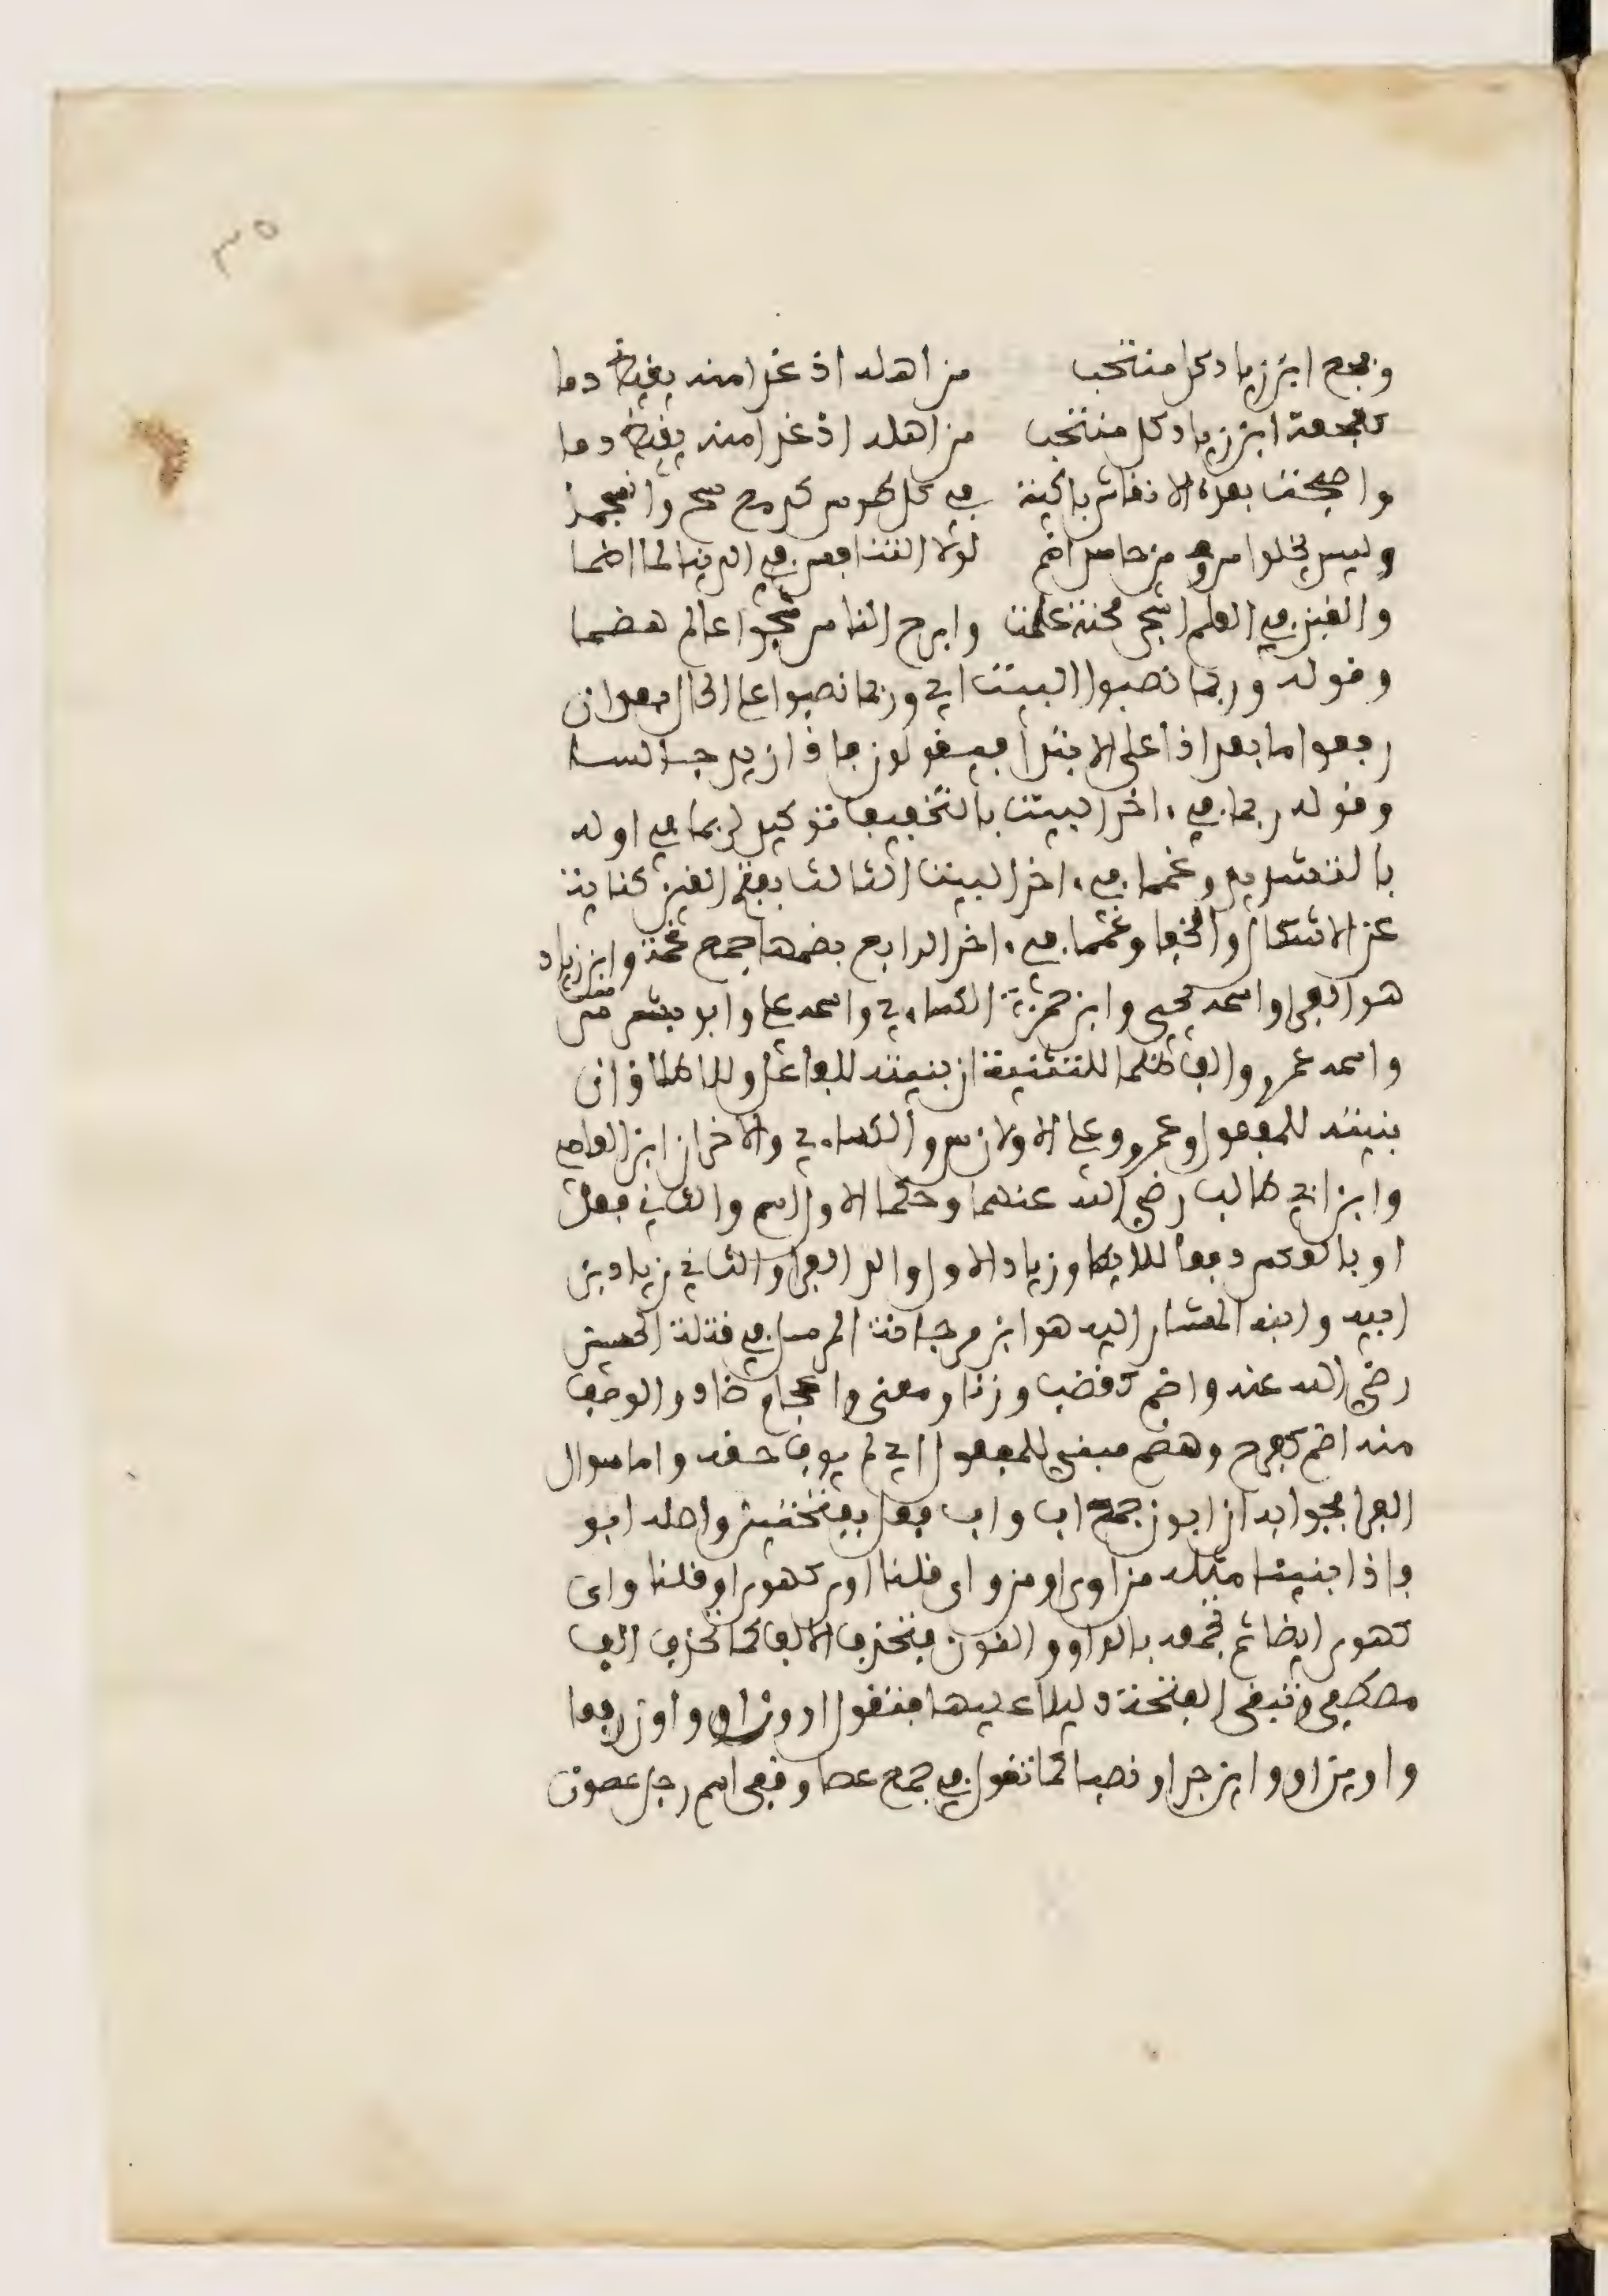 ٣٥
وفجع ابن زياد كل منتخب من اهله اذ غدا منه يفيض دما
كفجعة ابن زياد كل منتخب من اهله اذ غدا منه يفيض دما
واصبحت بعده الانفاس باكية في كل طرس كدمع سح وانسجما
وليس يخلو امرؤ من حاسد اضم لولا التنافس في الدنيا لما اضما
والغبن في العلم اشجى محنة علمت وابرح الناس شجوا عالم هضما
وقوله وربما نصبوا البيت اي وربما نصبوا على الحال بعد ان
رفعوا ما بعد اذا على الابتدا فيقولون فاذا زيد جالسا
وقوله ربما في ءاخر البيت بالتخفيف توكيد لربما في اوله
بالتشديد وغمما في ءاخر البيت الثالث بفتح الغين كناية
عن الاشكال والخفا وغمما في ءاخر الرابع بضمها جمع غمة وابن زياد
هو الفرا واسمه يحيى وابن حمزة الكساءي واسمه علي وابو بشر
واسمه عمرو والف ظلما للتثنية ان بنيته للفاعل وللاطلاق ان
بنيته للمفعول وعمرو وعلي الاولان س والكساءي والاخران ابن العاصي
وابن ابي طالب رضي الله عنهما وحكما الاول اسم والثاني فعل
او بالعكس دفعا للايطا وزياد الاول والد الفرا والثاني زياد بن
ابيه وابنه المشار اليه هو ابن مرجانة المرسل في قتلة الحسين
رضي الله عنه واضم كغضب وزنا ومعنى واعجام ضاد والوصف
منه اضم كفرح وهضم مبني للمفعول اي لم يوف حقه واما سوال
الفرا فجوابه ان ابون جمع اب واب فعل بفتحتين واصله ابو
فاذا بنينا مثله من اوى او من واى قلنا اوى كهوى او قلنا واى
كهوى ايضا ثم تجمعه بالواو والنون فتحذف الالف كما تحذف الف
مصطفى وتبقى الفتحة دليلا عليها فتقول اوون او واون رفعا
واوين او وواين جرا ونصبا كما تقول في جمع عصا وقفى اسم رجل عصون